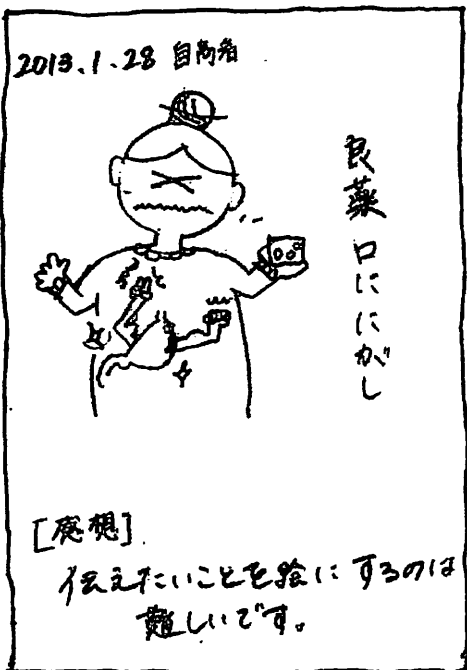 2013.1.28
良薬口ににがし
[感想]
伝えたいことを絵にするのは
難しいです。